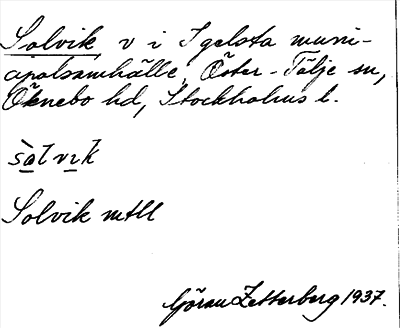 Solvik v i Igelsta muni-
cipalsamhälle, Öster-Tälje sn,
Öknebo hd, Stockholms l.
sàlvık
Solvik mtll
Göran Zetterberg 1937.